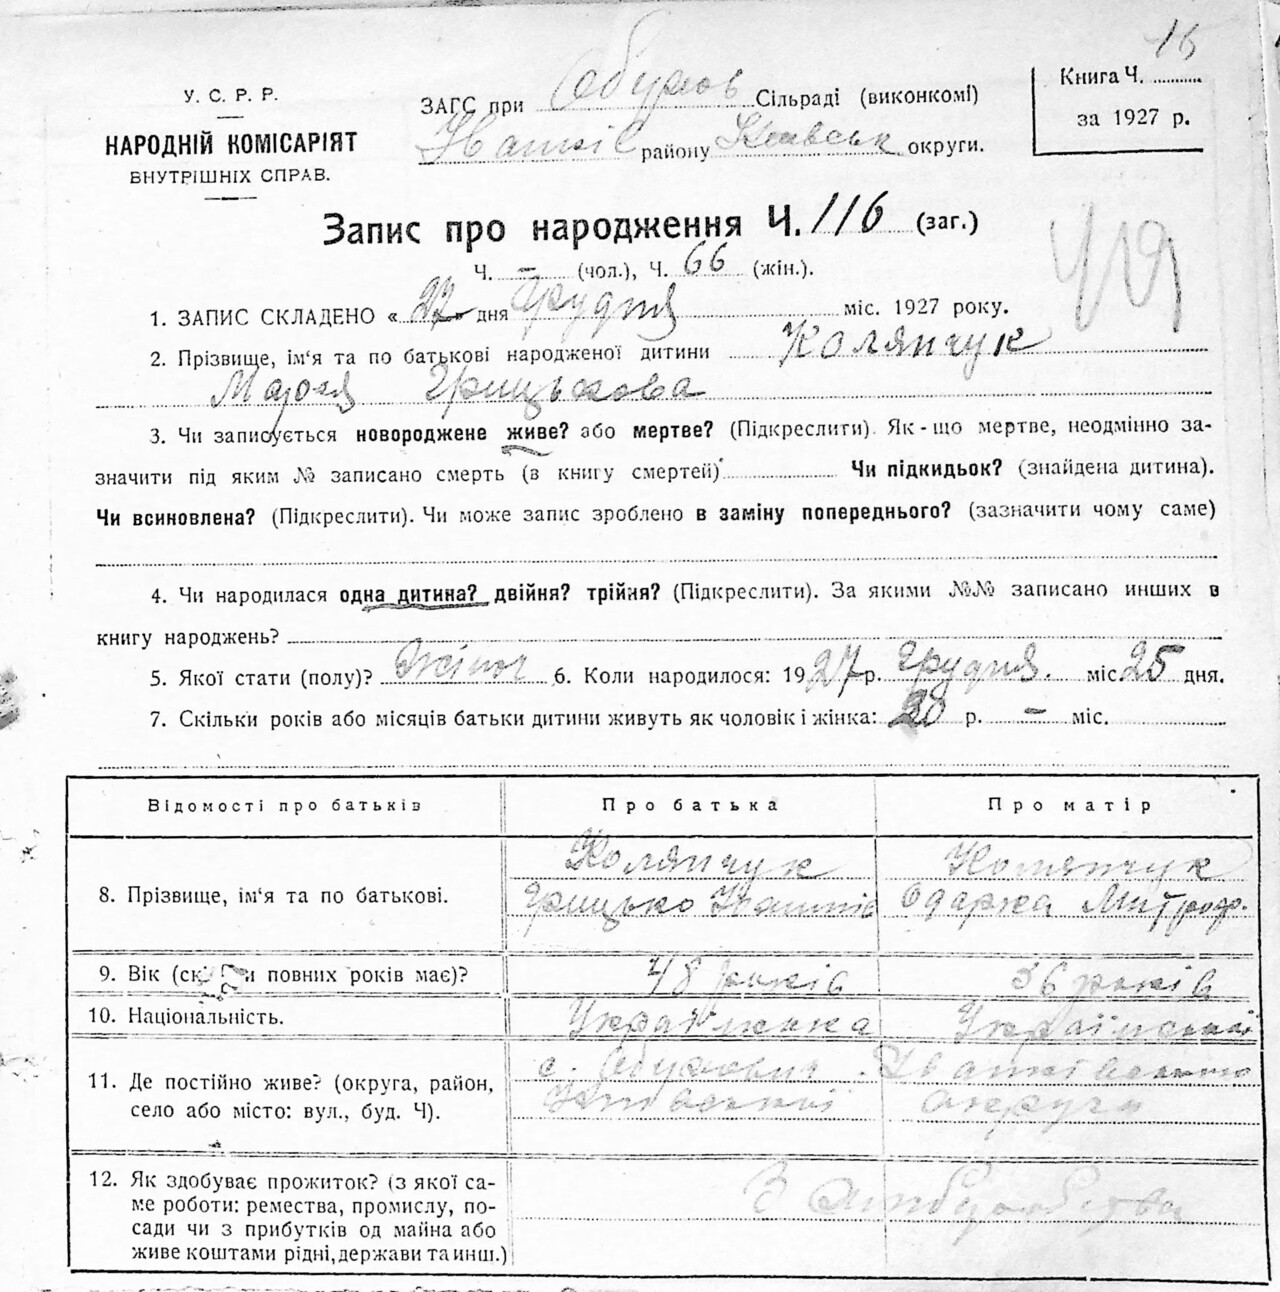 15
У. С. Р. Р.
НАРОДНІЙ КОМІСАРІЯТ
ВНУТРІШНІХ СПРАВ.
ЗАГС при Обухов Сільраді (виконкомі)
району Київськ округи.
Книга Ч.
за 1927 р.
Запис про народження Ч. 116 (заг.)
Ч. – (чол.), Ч. 66 (жін.).
419
1. ЗАПИС СКЛАДЕНО « 27 » дня Грудня міс. 1927 року.
2. Прізвище, ім'я та по батькові народженої дитини Колянчук
Марія Грицькова
3. Чи записується новороджене живе? або мертве? (Підкреслити). Як-що мертве, неодмінно за-
значити під яким № записано смерть (в книгу смертей) Чи підкидьок? (знайдена дитина).
Чи всиновлена? (Підкреслити). Чи може запис зроблено в заміну попереднього? (зазначити чому саме)
4. Чи народилася одна дитина? двійня? трійня? (Підкреслити). За якими №№ записано инших в
книгу народжень?
5. Якої стати (полу)? Жіноч 6. Коли народилося: 1927 р. Грудня міс. 25 дня.
7. Скільки років або місяців батьки дитини живуть як чоловік і жінка: 20 р. – міс.
Відомості про батьків Про батька Про матір
8. Прізвище, ім'я та по батькові. Колянчук Колянчук
Грицько Одарка Митроф.
9. Вік (скі и повних років має)? 48 років 36 років
10. Національність. Українка Українській
11. Де постійно живе? (округа, район, с. Обуховичі Іванківського
село або місто: вул., буд. Ч). Київської округи
12. Як здобуває прожиток? (з якої са-
ме роботи: ремества, промислу, по-
сади чи з прибутків од майна або
живе коштами рідні, держави та инш.)